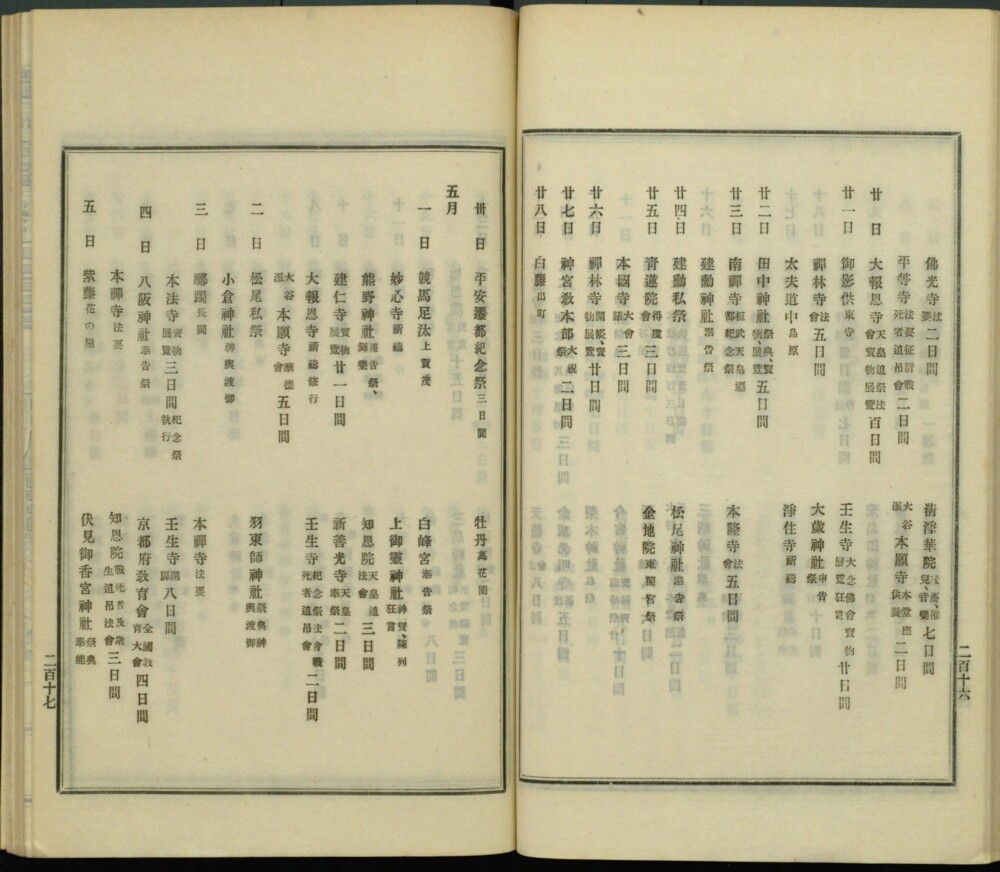 佛光寺法要二日間
淸淨華院法要、稚兒、音樂七日間
平等寺法要征淸戰死者追吊會二日間
大谷派本願寺本堂座供養二日間
廿日 大報恩寺天皇追祭法會寶物展覽百日間
廿一日 御影供東寺
壬生寺大念佛會寶物展覽狂言廿日間
禪林寺法會五日間
大歲神社祭申告
太夫道中島原
淨住寺祈禱
廿二日 田中神社祭典、寶物展覽五日間
廿三日 南禪寺桓武天皇遷都紀念祭
本隆寺法會五日間
建勳神社奉告祭
廿四日 建勳私祭
松尾神社奉告祭
廿五日 靑蓮院得度會三日間
金地院東照宮祭
本國寺大會三日間
廿六日 禪林寺開帳、寶物展覽廿日間
廿七日 神宮敎本部大祝祭二日間
廿八日 白藤出町
二百十六
卅日 平安遷都紀念祭三日間
牡丹萬花園
五月
一日 競馬足汰上賀茂
白峰宮奉告祭
妙心寺祈禱
上御靈神社神寶、陳列狂言
熊野神社奉告祭、舞樂
知恩院天皇追法會三日間
建仁寺寶物展覽廿一日間
新善光寺天皇奉祭二日間
大報恩寺祈禱修行
壬生寺紀念祭法會戰死者追吊會二日間
大谷派本願寺會五日間
二日 松尾私祭
羽束師神社祭典神輿渡御
小倉神社神輿渡御
三日 躑躅長岡
本禪寺法要
本法寺寶物展覽三日間紀念祭執行
壬生寺開扉八日間
四日 八阪神社奉告祭
京都府敎育會全國敎育大會四日間
本禪寺法要
知恩院戰死者及衆生追吊法會三日間
五日 紫藤花の屋
伏見御香宮神社祭典奉能
二百十七